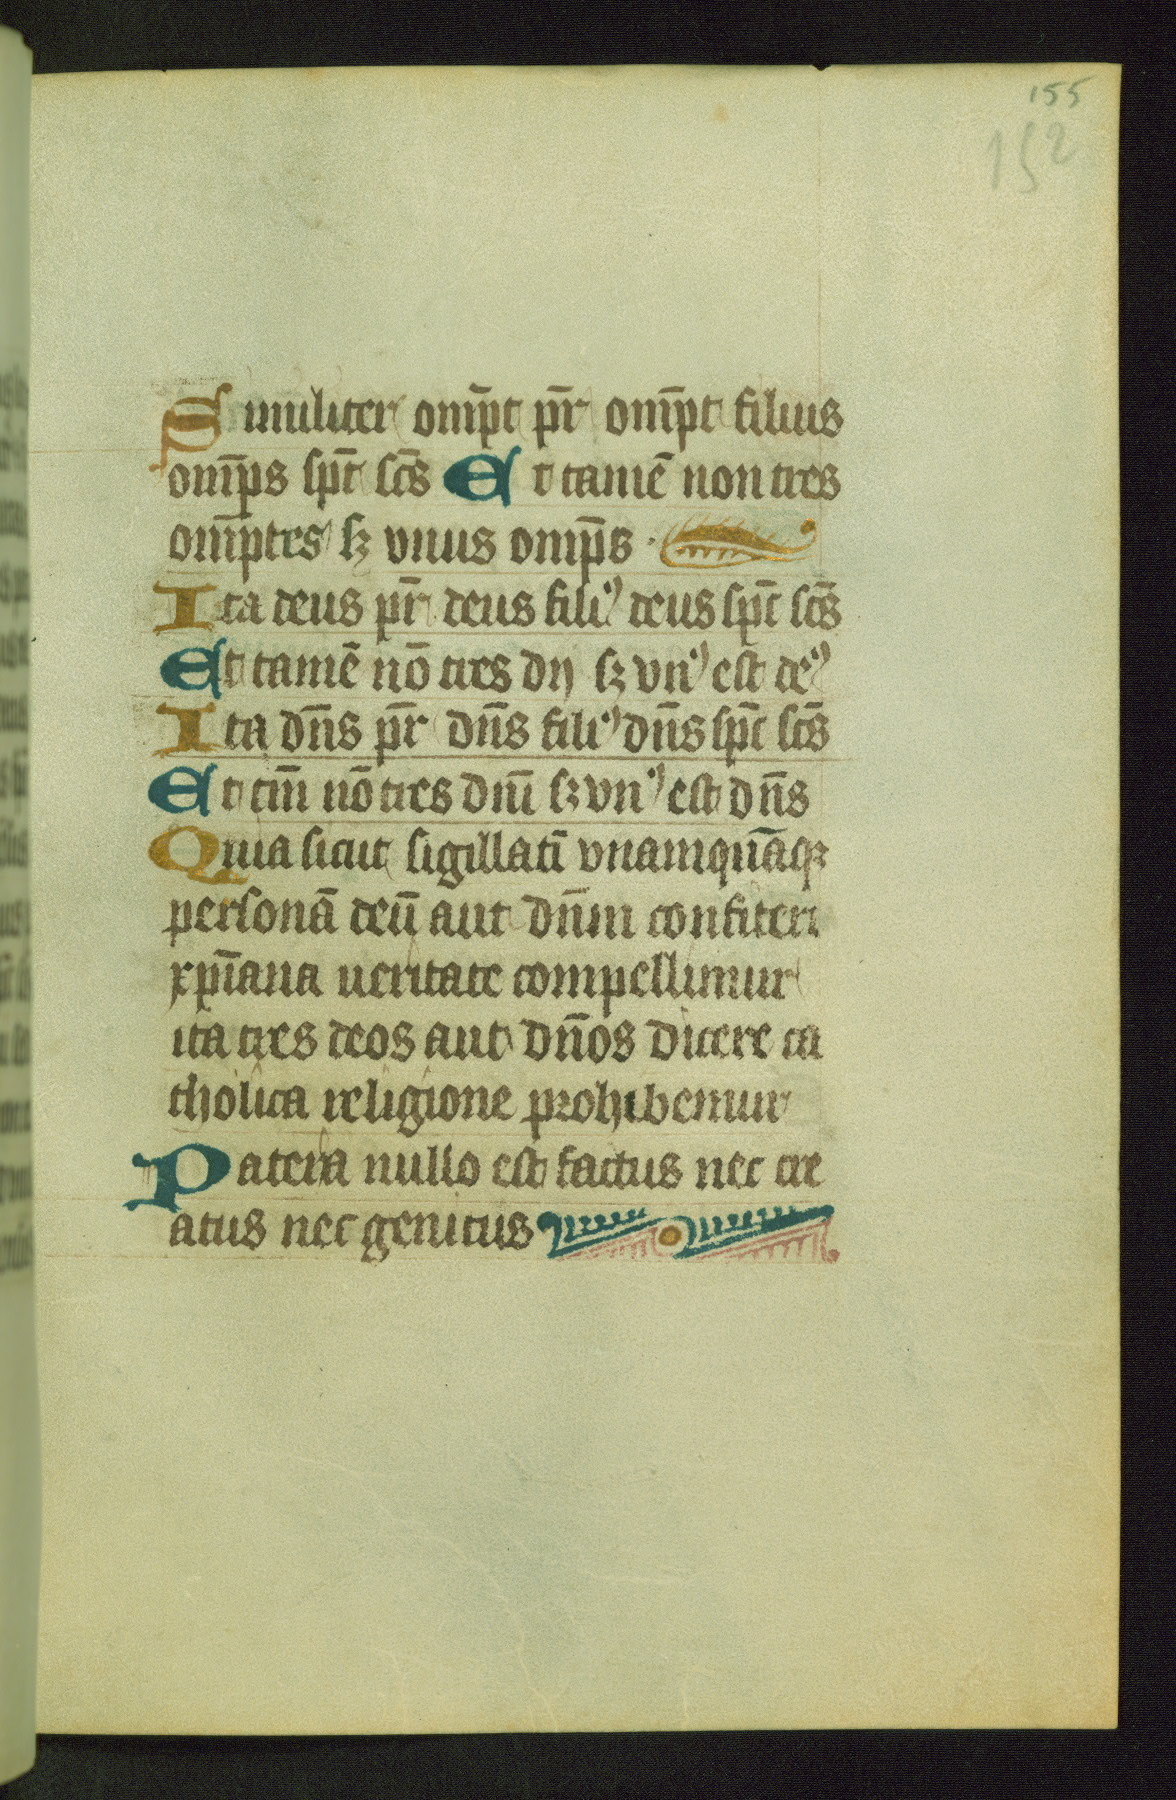 155
152
Similiter om̅pt pr̅ om̅pt filius
om̅ps spt̅ sc̅s Et tame̅ non tres
om̅ptes sꝫ vnus om̅ps ·
Ita deus pr̅ deus filiꝰ deus spt̅ sc̅s
Et tame̅ no̅ tres dij sꝫ vnꝰ est deꝰ
Ita dn̅s pr̅ dn̅s filiꝰ dn̅s spt̅ sc̅s
Et tm̅ no̅ tres dni̅ sꝫ vnꝰ est dn̅s
Quia sicut sigillati̅ vnamqua̅qꝫ
persona̅ deu̅ aut dn̅m confiteri
xpi̅ana ueritate compellimur
ita tres deos aut dn̅os dicere ca
tholica religione prohibemur
Pater a nullo est factus nec cre
atus nec genitus